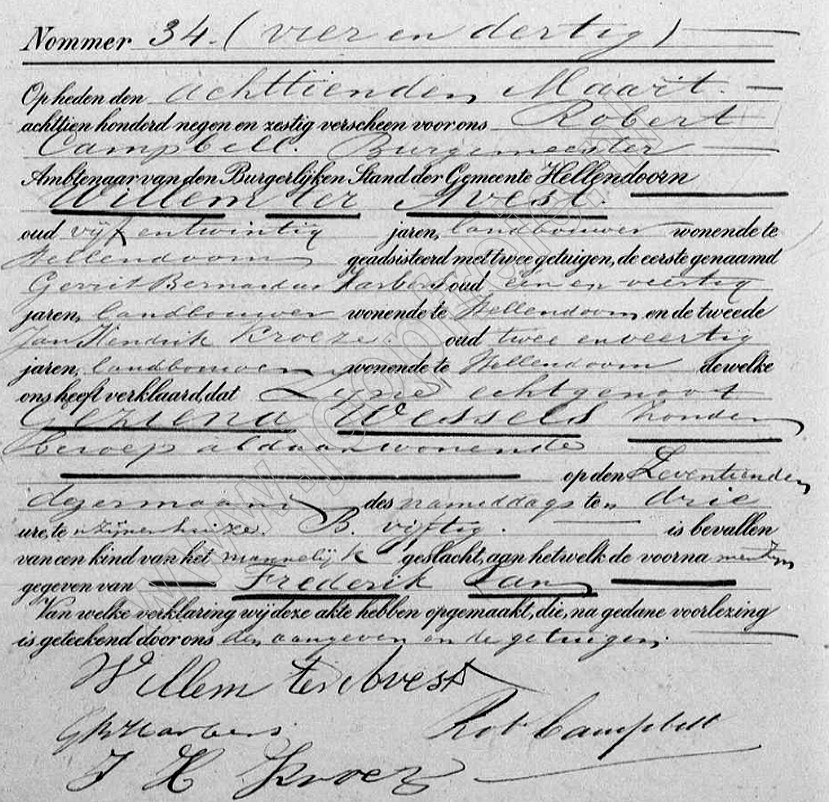 Nommer 34. (vier en dertig)
Op heden den achttienden Maart.
achttien honderd negen en zestig verscheen voor ons Robert
Campbell. Burgemeester
Ambtenaar van den Burgerlijken Stand der Gemeente Hellendoorn
Willem ter Avest.
oud vijf en twintig jaren, landbouwer wonende te
Hellendoorn geadsisteerd met twee getuigen, de eerste genaamd
Gerrit Bernardus Harbers oud een en veertig
jaren, landbouwer wonende te Hellendoorn, en de tweede
Jan Hendrik Kroeze. oud twee en veertig
jaren, landbouwer wonende te Hellendoorn dewelke
ons heeft verklaard, dat Zijne echtgenoot
Geziena Wessels zonder
beroep aldaar wonende
op den Zeventienden
dezer maand des namiddags ten drie
ure, te zijnen huize. B. vijftig. is bevallen
van een kind van het mannelijk geslacht, aan hetwelk de voorna men zijn
gegeven van Frederik Jan
Van welke verklaring wij deze akte hebben opgemaakt, die, na gedane voorlezing
is geteekend door ons den aangever en de getuigen.
Willem ter Avest
GB Harbers Rob Campbell
J H Kroeze
www.jpoptrek.nl